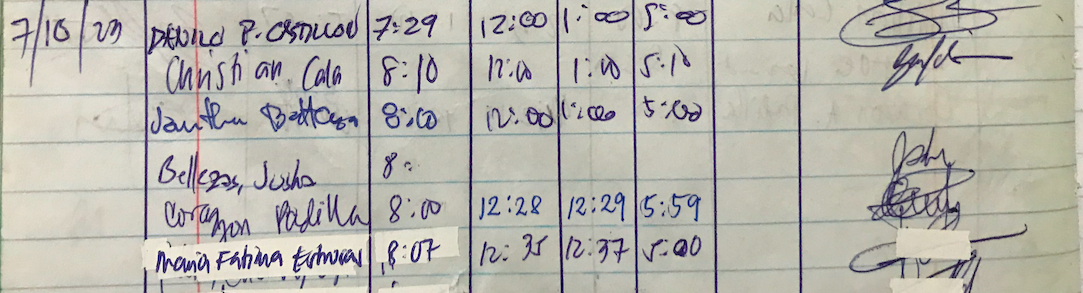 7/10/23 DANILO P. CASTILLON 7:29 12:00 1:00 5:00
Christian Cala 8:10 12:00 1:00 5:10
8:00 12:00 1:00 5:00
Bellezas, 8:
Corazon Padilla 8:00 12:28 12:29 5:59
Maria Fatima 8:07 12:35 12:37 5:00